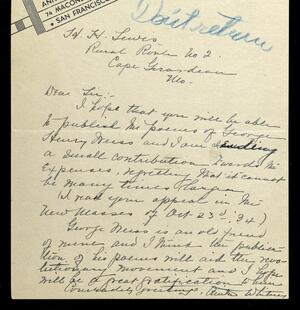 74 MACON
• SAN FRANCISCO
Don't return
H. H. Lewis
Rural Route No 2.
Cape Girardeau
Mo.
Dear Sir:-
I hope that you will be able
to publish the poems of George
Henry Weiss and I am sending
a small contribution towards the
expenses, regretting that it cannot
be many times larger.
(I read your appeal in the
New Masses of Oct 23rd '34)
George Weiss is an old friend
of mine and I think the publica-
tion of his poems will aid the revo-
lutionary movement and I hope
will be a great gratification to him
Comradely greetings, Anita Whitney